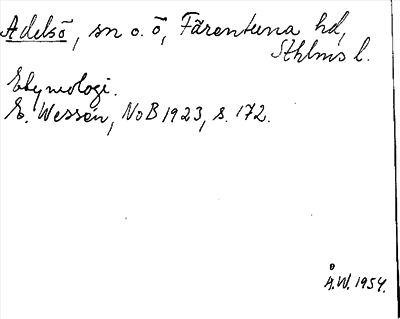 Adelsö, sn o. ö, Färentuna hd,
Sthlms l.
Etymologi.
E. Wessén, NoB 1923, s. 172.
Å.W. 1954.